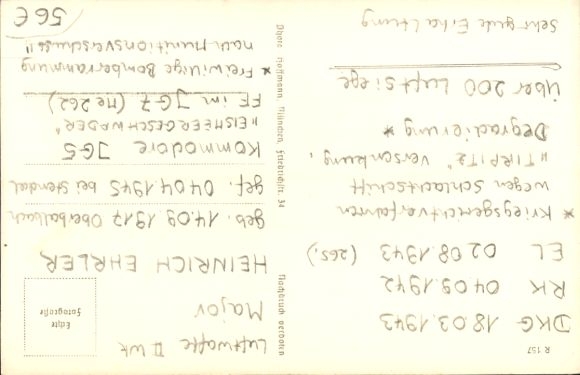 R 157
DKG 18.03.1943
RK 04.09.1942
EL 02.08.1943 (265.)
* Kriegsgerichtverfahren
wegen Schlachtschiff
"TIRPITZ" Versenkung,
Degradierung *
Über 200 Luftsiege
Sehr gute Erhaltung
Nachdruck verboten
Photo Hoffmann, München, Friedrichstr. 34
Luftwaffe II WK
Major
Echte
Fotografie
HEINRICH EHRLER
geb. 14.09.1917 Oberbalbach
gef. 04.04.1945 bei Stendal
Kommodore JG5
"EISMEERGESCHWADER"
FF im JG7 (Me 262)
* Freiwillige Bomberrammung
nach Munitionsverschuss"
56€